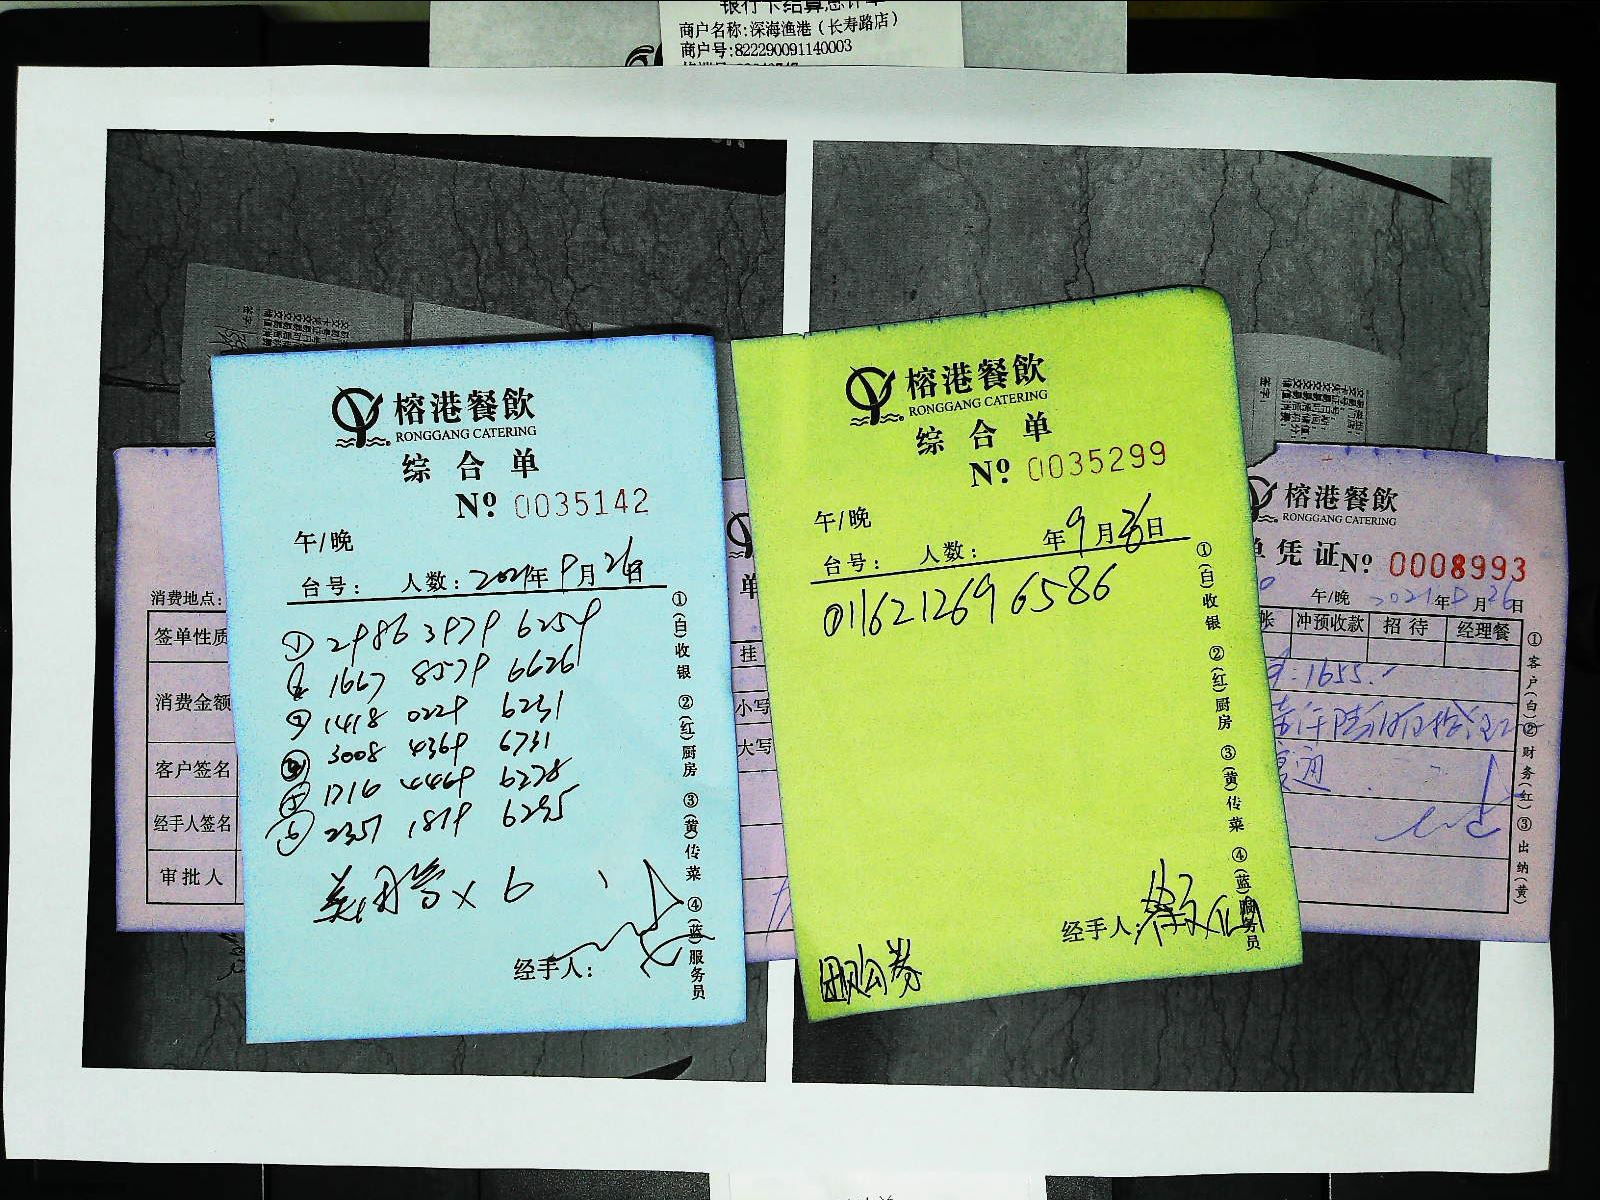 银行卡结算总计单
商户名称:深海渔港(长寿路店)
商户号:822290091140003
榕港餐飲
RONGGANG CATERING
综合单
Nº 0035142
午/晚
台号: 人数: 2021年9月26日
① 2986 3979 6259
② 1667 8579 6626
③ 1418 0229 6231
④ 3008 4369 6731
⑤ 1716 4469 6278
⑥ 2357 1819 6295
美团券×6
经手人:
①(白)收银 ②(红)厨房 ③(黄)传菜 ④(蓝)服务员
榕港餐飲
RONGGANG CATERING
综合单
Nº 0035299
午/晚
台号: 人数: 年9月26日
011621269 6586
经手人:
团购券
①(白)收银 ②(红)厨房 ③(黄)传菜 ④(蓝)服务员
消费地点:
签单性质
消费金额
客户签名
经手人签名
审批人
单
挂
小写
大写
榕港餐飲
RONGGANG CATERING
单凭证Nº 0008993
午/晚 2021年9月26日
帐 冲预收款 招待 经理餐
1655.
①客户(白)②财务(红)③出纳(黄)